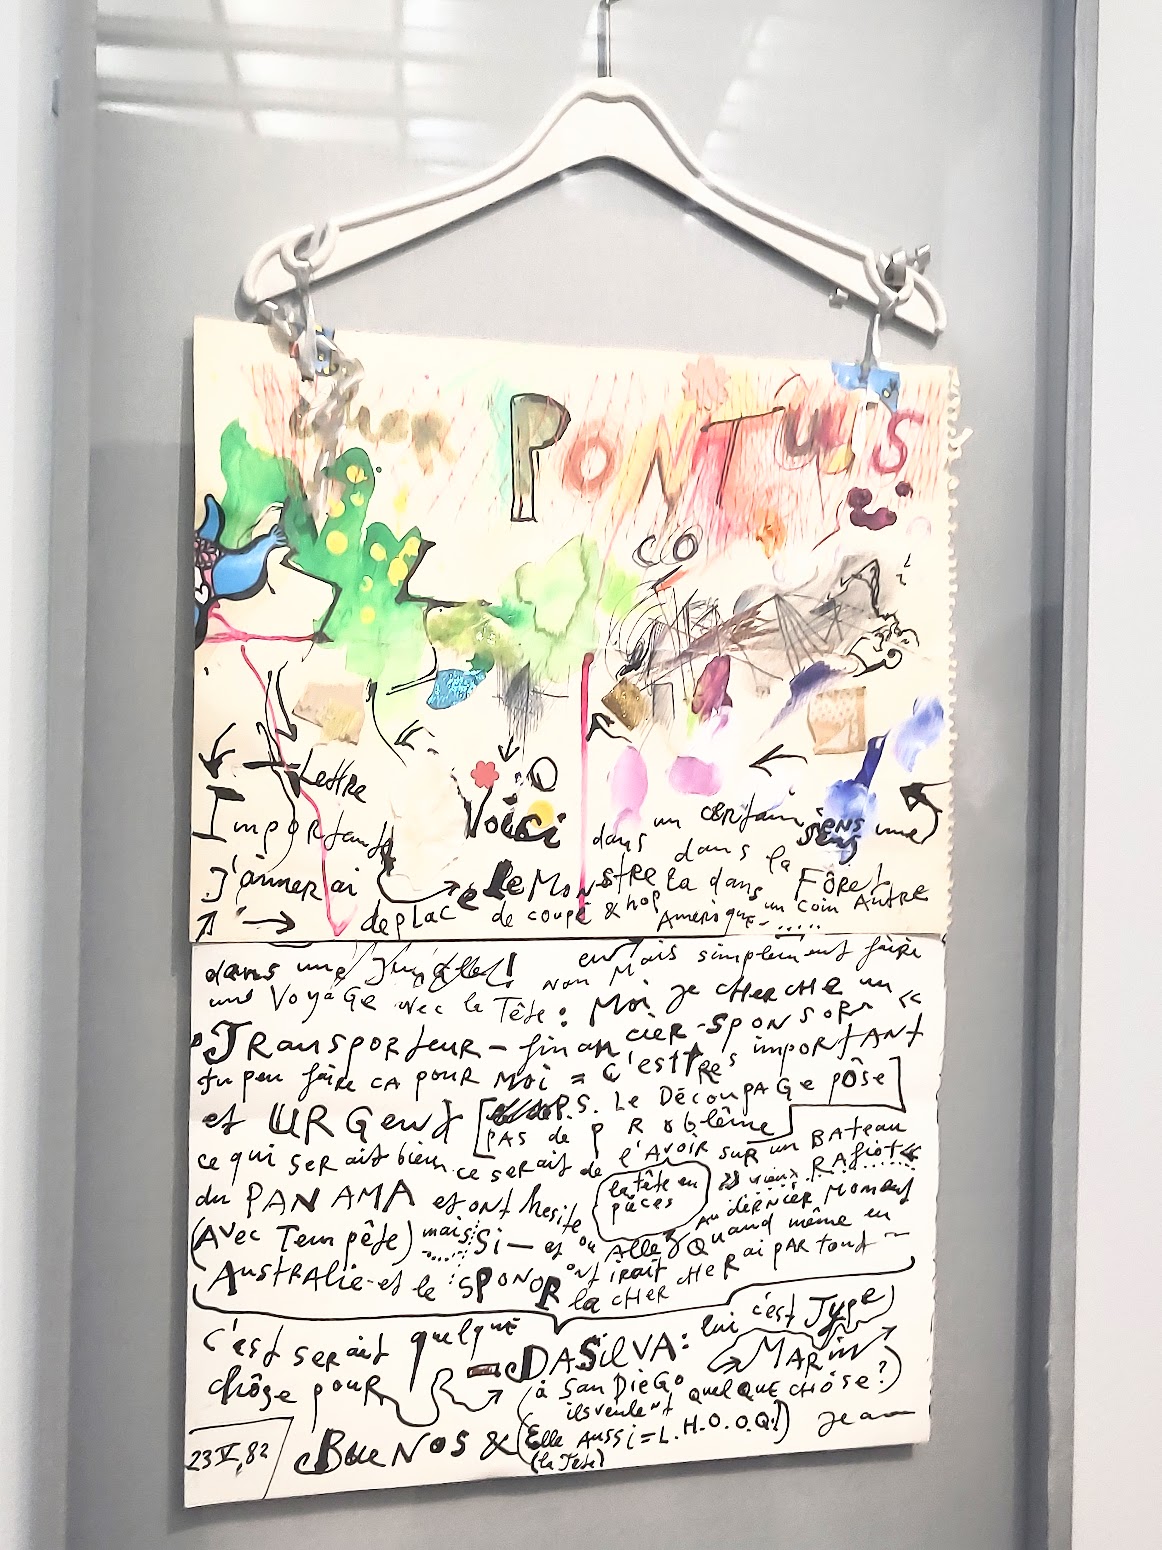 PONTUS
CO
Lettre
Importante Voici dans un certain sens une
J'aimerai le Monstre la dans la Fôret
deplacé de coupé & hop dans un coin Autre
Amerique.....
dans une Jungle! non Mais simplement faire
une Voyage avec la Tête: Moi je cherche un
"Transporteur-financier-sponsor"
tu peu faire ca pour moi = c'est tres important
et URGent [P.S. Le DécoupAGe pôse
pas de problême]
ce qui serait bien ce serait de l'Avoir sur un BAteau
du PANAMA et ont hesite (la tête en pièces) vieux RAfiot
(Avec Tempête) mais Si - et ou Au dernier Moment
AllerQuand même en
Australie-et le SPONOR ont irait la cHercHerai pARtout
c'est serait quelque
chôse pour DASilVA: lui c'est Type MARin
(à San DieGo quelque chôse?)
ils veulent
BueNoS & (Elle Aussi=L.H.O.O.Q!)
(la Tête)
Jean
23 V, 82